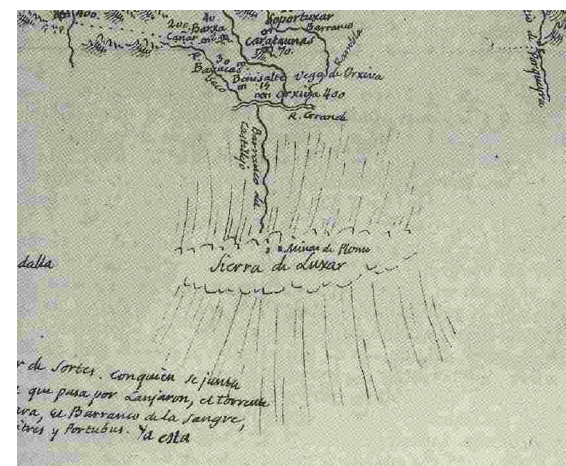 400.
200.
40
Barxa
Cañar
Soportuxar
Barranco
Carataunas
70.
Ramilla
30
Barxacas
Benisalte
15
Vega de Orxiva
Orxiva 400
R. Grande
Barranco del
Castillejo
Minas de Plomo
Sierra de Luxar
dalla
r de Sortes. Conquien se junta
que pasa por Lanjaron, el torrente
ava, el Barranco de la Sangre,
itres y Portubus. Ya esta